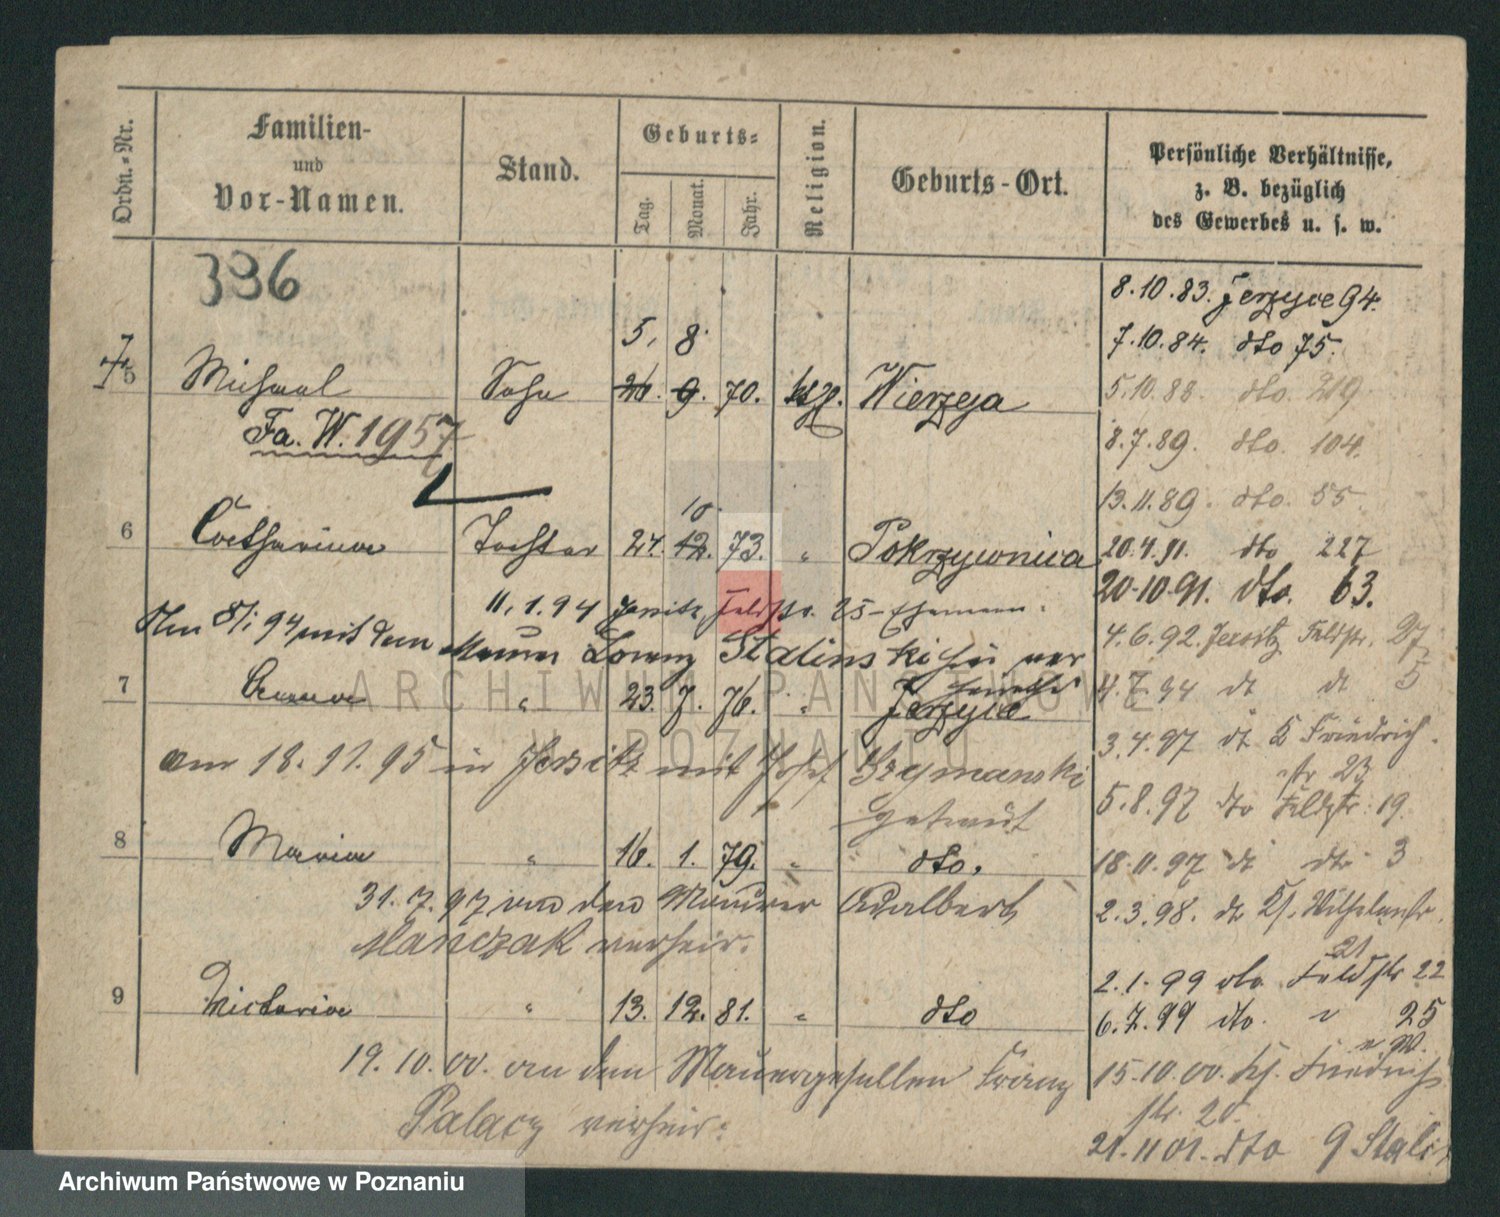 Ordn.-Nr.
Familien-
und
Vor-Namen.
Stand.
Geburts-
Tag.
Monat.
Jahr.
Religion.
Geburts-Ort.
Persönliche Verhältnisse,
z. B. bezüglich
des Gewerbes u. s. w.
336
8.10.83. Jerzyce 94.
5. 8.
7.10.84. dto 75.
7
5 Michael Sohn 26. 9. 70. kth. Wierzeja
5.10.88. dto. 219
Fa. W. 1957
8.7.89. dto. 104.
13.11.89. dto. 55.
10.
6 Catharina Tochter 24. 12. 73. " Pokrzywnica
20.4.91. dto 227
20.10.91. dto. 63.
11.1.94 Jersitz Feldstr. 25 - Ehemann.
4.6.92. Jersitz Feldstr. 27
Am 8/1 94 mit dem Maurer Lorenz Stalinski ver
heirathet
7 Anna " 23. 7. 76. " Jerzyce
4.7.94 dt dt 5
3.4.97 dt 5 Friedrich
str 23
am 18.11.95 in Jersitz mit Josef Szymanski
getraut
5.8.97 dto Feldstr. 19.
8 Maria " 16. 1. 79. " dto.
18.11.97 dt dto 3
31.7.97 an den Maurer Adalbert
2.3.98. dt Wilhelmstr.
21
Mańczak verheir.
2.1.99 dto Feldstr 22
9 Victoria " 13. 12. 81. " dto
6.7.99 dto. " 25
19.10.00. an den Mauergesellen Franz
15.10.00. Friedrich
str. 20.
Palacz verheir.
21.11 01. dto 9
ARCHIWUM PAŃSTWOWE
W POZNANIU
Archiwum Państwowe w Poznaniu